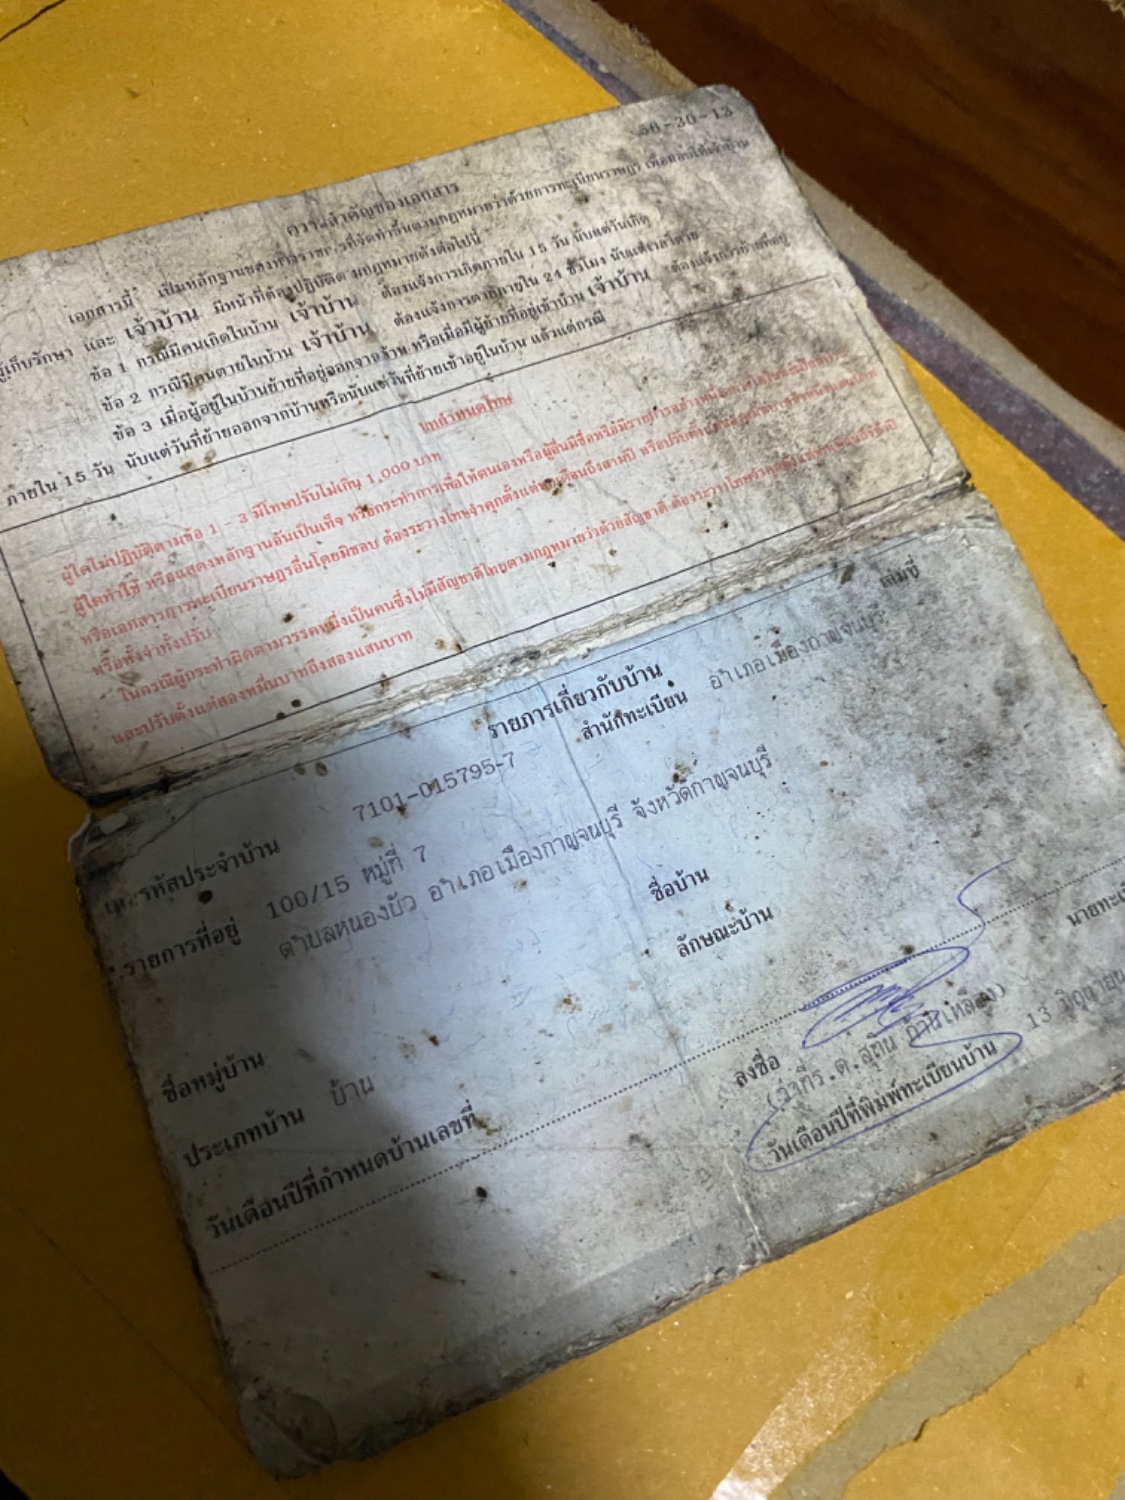 56-30-13
ความสำคัญของเอกสาร
เอกสารนี้ เป็นหลักฐานของทางราชการที่จัดทำขึ้นตามกฎหมายว่าด้วยการทะเบียนราษฎร เพื่อมอบให้เจ้าบ้าน
ผู้เก็บรักษา และ เจ้าบ้าน มีหน้าที่ต้องปฏิบัติตามกฎหมายดังต่อไปนี้
ข้อ 1 กรณีมีคนเกิดในบ้าน เจ้าบ้าน ต้องแจ้งการเกิดภายใน 15 วัน นับแต่วันเกิด
ข้อ 2 กรณีมีคนตายในบ้าน เจ้าบ้าน ต้องแจ้งการตายภายใน 24 ชั่วโมง นับแต่เวลาตาย
ข้อ 3 เมื่อผู้อยู่ในบ้านย้ายที่อยู่ออกจากบ้าน หรือเมื่อมีผู้ย้ายที่อยู่เข้าบ้าน เจ้าบ้าน ต้องแจ้งการย้ายที่อยู่
ภายใน 15 วัน นับแต่วันที่ย้ายออกจากบ้านหรือนับแต่วันที่ย้ายเข้าอยู่ในบ้าน แล้วแต่กรณี
บทกำหนดโทษ
ผู้ใดไม่ปฏิบัติตามข้อ 1 - 3 มีโทษปรับไม่เกิน 1,000 บาท
ผู้ใดทำ ใช้ หรือแสดงหลักฐานอันเป็นเท็จ หรือกระทำการเพื่อให้ตนเองหรือผู้อื่นมีชื่อหรือมีรายการอย่างหนึ่งอย่างใดในทะเบียนบ้าน
หรือเอกสารการทะเบียนราษฎรอื่นโดยมิชอบ ต้องระวางโทษจำคุกตั้งแต่หกเดือนถึงสามปี หรือปรับตั้งแต่
หรือทั้งจำทั้งปรับ
ในกรณีผู้กระทำผิดตามวรรคหนึ่งเป็นคนซึ่งไม่มีสัญชาติไทยตามกฎหมายว่าด้วยสัญชาติ ต้องระวางโทษจำคุกตั้งแต่หกเดือนถึงห้าปี
และปรับตั้งแต่สองหมื่นบาทถึงสองแสนบาท
เล่มที่
รายการเกี่ยวกับบ้าน
เลขรหัสประจำบ้าน 7101-015795-7 สำนักทะเบียน อำเภอเมืองกาญจนบุรี
รายการที่อยู่ 100/15 หมู่ที่ 7
ตำบลหนองบัว อำเภอเมืองกาญจนบุรี จังหวัดกาญจนบุรี
ชื่อหมู่บ้าน ชื่อบ้าน
ประเภทบ้าน บ้าน ลักษณะบ้าน
วันเดือนปีที่กำหนดบ้านเลขที่
ลงชื่อ นายทะเบียน
(ว่าที่ร.ต.สุทิน ก้านเหลือง)
วันเดือนปีที่พิมพ์ทะเบียนบ้าน 13 มิถุนายน